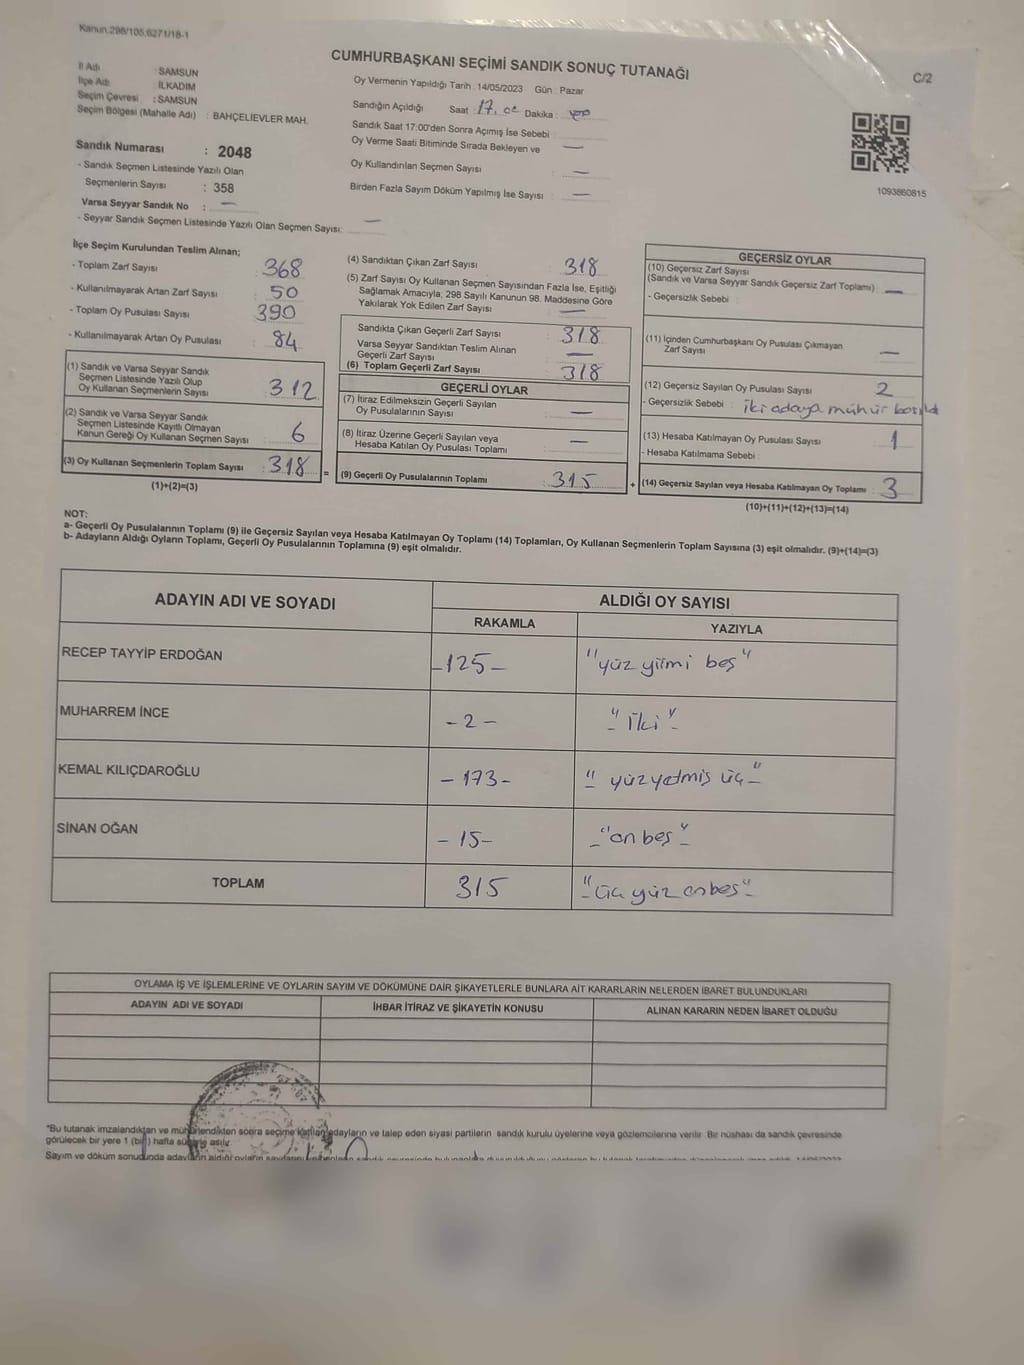 Kanun.298/105,6271/18-1
CUMHURBAŞKANI SEÇİMİ SANDIK SONUÇ TUTANAĞI
C/2
İl Adı : SAMSUN
İlçe Adı : İLKADIM
Seçim Çevresi : SAMSUN
Seçim Bölgesi (Mahalle Adı) : BAHÇELİEVLER MAH.
Sandık Numarası : 2048
- Sandık Seçmen Listesinde Yazılı Olan
Seçmenlerin Sayısı : 358
Varsa Seyyar Sandık No : —
- Seyyar Sandık Seçmen Listesinde Yazılı Olan Seçmen Sayısı: —
Oy Vermenin Yapıldığı Tarih : 14/05/2023 Gün : Pazar
Sandığın Açıldığı Saat : 17. Dakika :
Sandık Saat 17:00'den Sonra Açımış İse Sebebi :
Oy Verme Saati Bitiminde Sırada Bekleyen ve —
Oy Kullandırılan Seçmen Sayısı : —
Birden Fazla Sayım Döküm Yapılmış İse Sayısı : —
1093860815
İlçe Seçim Kurulundan Teslim Alınan;
- Toplam Zarf Sayısı : 368
- Kullanılmayarak Artan Zarf Sayısı : 50
- Toplam Oy Pusulası Sayısı : 390
- Kullanılmayarak Artan Oy Pusulası : 84
(1) Sandık ve Varsa Seyyar Sandık
Seçmen Listesinde Yazılı Olup
Oy Kullanan Seçmenlerin Sayısı : 312
(2) Sandık ve Varsa Seyyar Sandık
Seçmen Listesinde Kayıtlı Olmayan
Kanun Gereği Oy Kullanan Seçmen Sayısı : 6
(3) Oy Kullanan Seçmenlerin Toplam Sayısı : 318 =
(1)+(2)=(3)
(4) Sandıktan Çıkan Zarf Sayısı : 318
(5) Zarf Sayısı Oy Kullanan Seçmen Sayısından Fazla İse, Eşitliği
Sağlamak Amacıyla, 298 Sayılı Kanunun 98. Maddesine Göre
Yakılarak Yok Edilen Zarf Sayısı : —
Sandıkta Çıkan Geçerli Zarf Sayısı : 318
Varsa Seyyar Sandıktan Teslim Alınan
Geçerli Zarf Sayısı : —
(6) Toplam Geçerli Zarf Sayısı : 318
GEÇERLİ OYLAR
(7) İtiraz Edilmeksizin Geçerli Sayılan
Oy Pusulalarının Sayısı : —
(8) İtiraz Üzerine Geçerli Sayılan veya
Hesaba Katılan Oy Pusulası Toplamı : —
(9) Geçerli Oy Pusulalarının Toplamı : 315 +
GEÇERSİZ OYLAR
(10) Geçersiz Zarf Sayısı
(Sandık ve Varsa Seyyar Sandık Geçersiz Zarf Toplamı) : —
- Geçersizlik Sebebi :
(11) İçinden Cumhurbaşkanı Oy Pusulası Çıkmayan
Zarf Sayısı : —
(12) Geçersiz Sayılan Oy Pusulası Sayısı : 2
- Geçersizlik Sebebi : iki adaya mühür basıldı
(13) Hesaba Katılmayan Oy Pusulası Sayısı : 1
- Hesaba Katılmama Sebebi :
(14) Geçersiz Sayılan veya Hesaba Katılmayan Oy Toplamı : 3
(10)+(11)+(12)+(13)=(14)
NOT:
a- Geçerli Oy Pusulalarının Toplamı (9) ile Geçersiz Sayılan veya Hesaba Katılmayan Oy Toplamı (14) Toplamları, Oy Kullanan Seçmenlerin Toplam Sayısına (3) eşit olmalıdır. (9)+(14)=(3)
b- Adayların Aldığı Oyların Toplamı, Geçerli Oy Pusulalarının Toplamına (9) eşit olmalıdır.
ADAYIN ADI VE SOYADI
ALDIĞI OY SAYISI
RAKAMLA YAZIYLA
RECEP TAYYİP ERDOĞAN -125- "yüz yirmi beş"
MUHARREM İNCE -2- "iki"
KEMAL KILIÇDAROĞLU -173- "yüzyetmiş üç"
SİNAN OĞAN -15- "on beş"
TOPLAM 315 "üç yüz onbeş"
OYLAMA İŞ VE İŞLEMLERİNE VE OYLARIN SAYIM VE DÖKÜMÜNE DAİR ŞİKAYETLERLE BUNLARA AİT KARARLARIN NELERDEN İBARET BULUNDUKLARI
ADAYIN ADI VE SOYADI İHBAR İTİRAZ VE ŞİKAYETİN KONUSU ALINAN KARARIN NEDEN İBARET OLDUĞU
*Bu tutanak imzalandıktan ve mühürlendikten sonra seçime katılan adayların ve talep eden siyasi partilerin sandık kurulu üyelerine veya gözlemcilerine verilir. Bir nüshası da sandık çevresinde
görülecek bir yere 1 (bir) hafta süreyle asılır.
Sayım ve döküm sonucunda adayların aldığı oyların